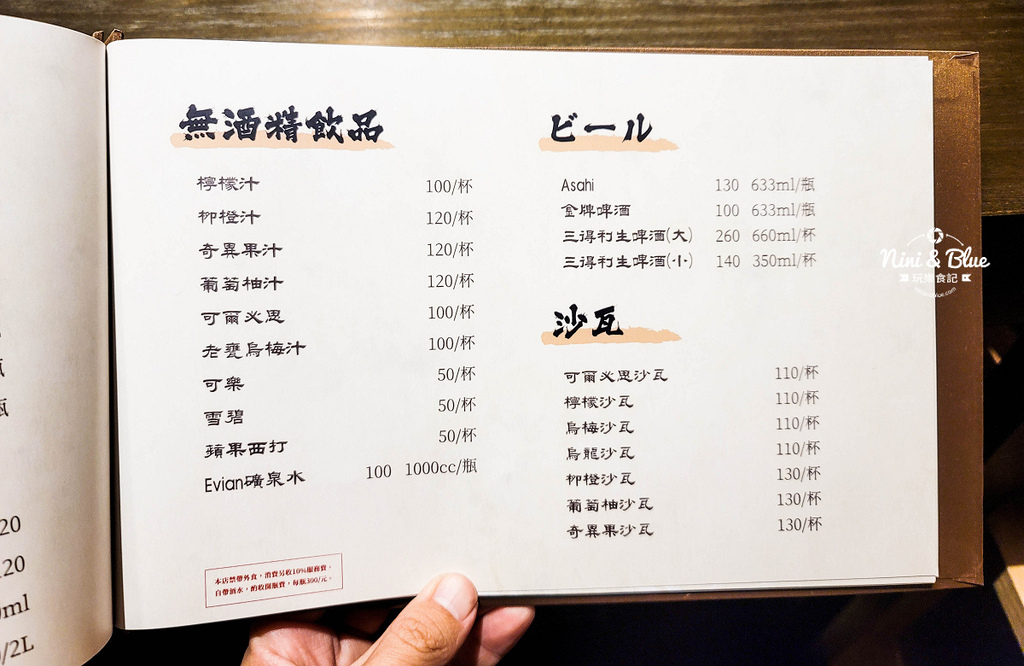 無酒精飲品
檸檬汁 100/杯
柳橙汁 120/杯
奇異果汁 120/杯
葡萄柚汁 120/杯
可爾必思 100/杯
老甕烏梅汁 100/杯
可樂 50/杯
雪碧 50/杯
蘋果西打 50/杯
Evian礦泉水 100 1000cc/瓶
本店禁帶外食，消費另收10%服務費。
自帶酒水，酌收開瓶費，每瓶300/元。
ビール
Asahi 130 633ml/瓶
金牌啤酒 100 633ml/瓶
三得利生啤酒(大) 260 660ml/杯
三得利生啤酒(小) 140 350ml/杯
沙瓦
可爾必思沙瓦 110/杯
檸檬沙瓦 110/杯
烏梅沙瓦 110/杯
烏龍沙瓦 110/杯
柳橙沙瓦 130/杯
葡萄柚沙瓦 130/杯
奇異果沙瓦 130/杯
Nini & Blue
玩樂食記
瓶
瓶
20
120
ml
/2L